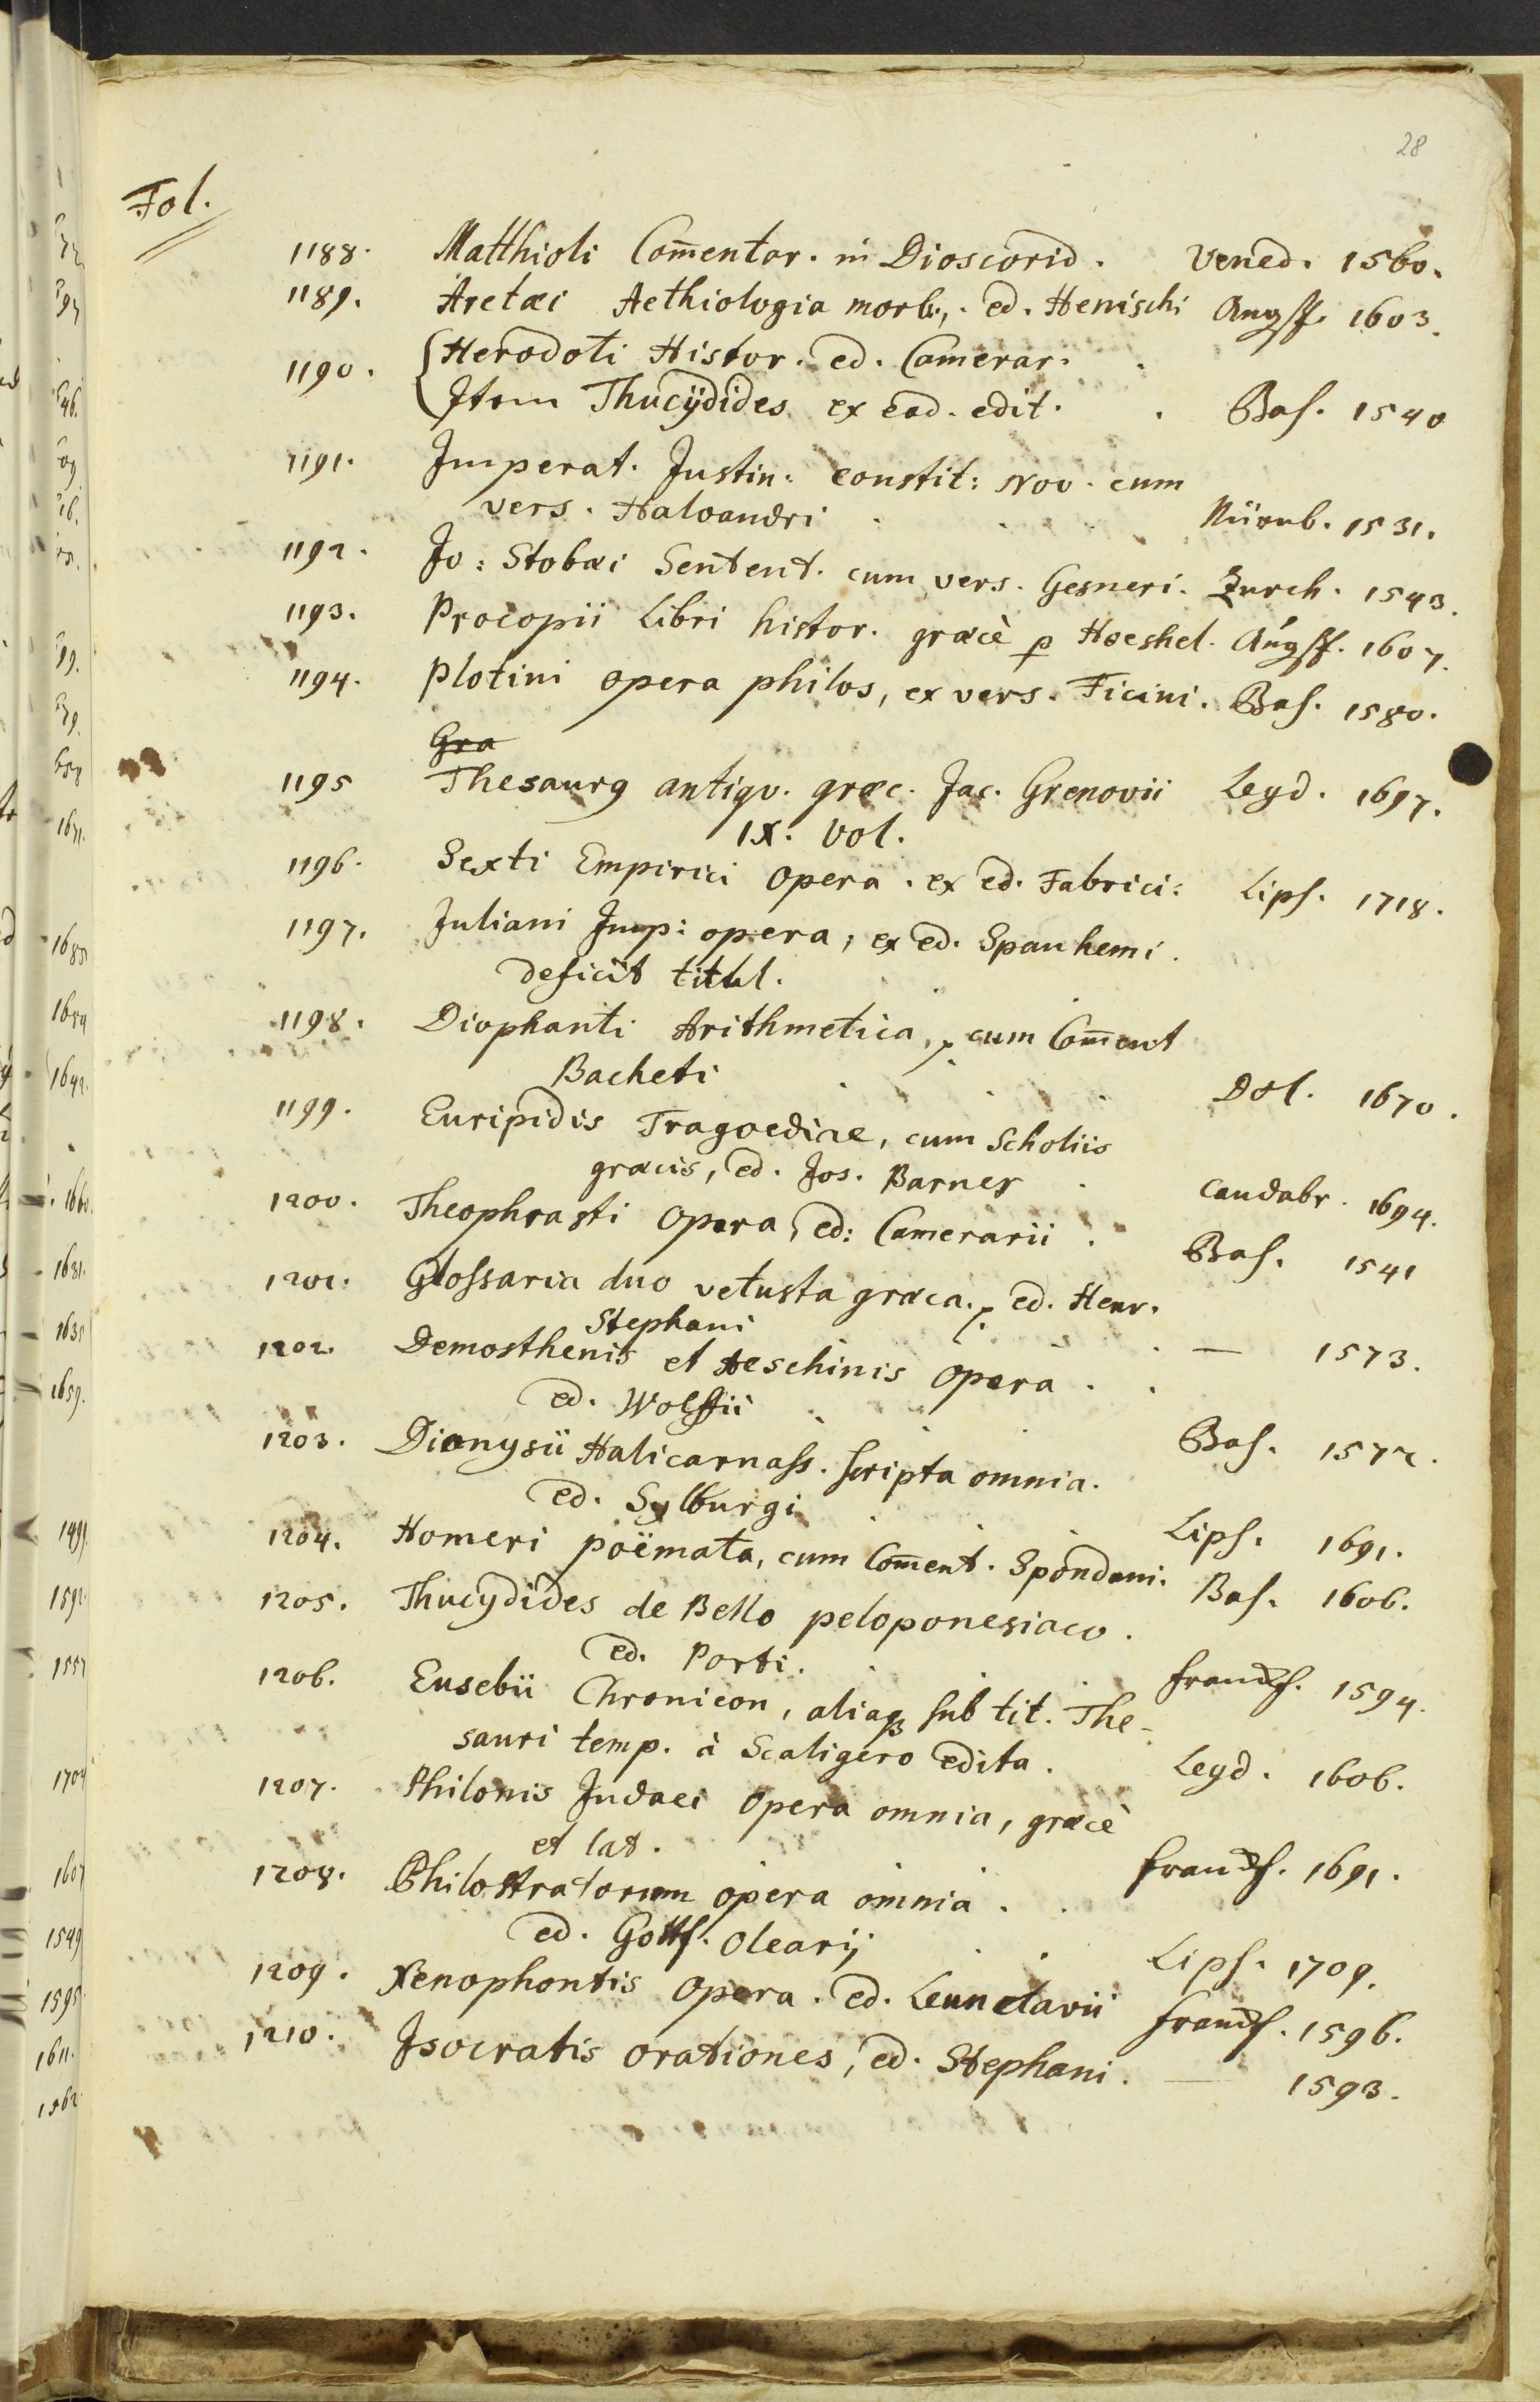 28
Fol.
1188. Matthioli Com̄entar. in Dioscorid. Vened. 1560.
1189. Aretæi Aethiologia morb., ed. Henischi Augsp. 1603.
1190. { Herodoti Histor. ed. Camerar.
Item Thucÿdides ex ead. edit. Bas. 1540
1191. Imperat. Justin: constit: Nov. cum
vers. Haloandri Nürnb. 1531.
1192. Jo: Stobæi Sentent. cum vers. Gesneri. Zurch. 1543.
1193. Procopii Libri histor. græcè p Hoeshel. Augsp. 1607.
1194. Plotini opera philos, ex vers. Ficini. Bas. 1580.
Gra
1195 Thesaurg antiqv. græc. Jac. Grenovii Leyd. 1697.
IX. Vol.
1196. Sexti Empirici Opera. ex ed. Fabrici: Lips. 1718.
1197. Juliani Imp: opera, ex ed. Spanhemi.
deficit titul.
1198. Diophanti Arithmetica, cum Com̄ent
Bacheti Dol. 1670.
1199. Euripidis Tragoediae, cum Scholiis
græcis, ed. Jos. Barnes Candabr. 1694.
1200. Theophrasti Opera, ed: Camerarii. Bas. 1541
1201. Glossaria duo vetusta græca. ed. Henr.
Stephani — 1573.
1202. Demosthenis et Aeschinis Opera.
ed. Wolffii Bas. 1572.
1203. Dionysii Halicarnass. scripta omnia.
ed. Sylburgi Lips. 1691.
1204. Homeri poëmata, cum Com̄ent. Spondani. Bas. 1606.
1205. Thucydides de Bello peloponesiaco.
ed. Porti. Francf. 1594.
1206. Eusebii Chronicon, aliaqꝫ sub tit. The-
sauri temp. à Scaligero edita. Leyd. 1606.
1207. Philonis Judaei Opera omnia, græcè
et lat. Francf. 1691.
1208. Philostratorum opera omnia.
ed. Gottf. Olearij Lips. 1709.
1209. Xenophontis Opera. ed. Leunclavii Francf. 1596.
1210. Isocratis orationes, ed. Stephani. — 1593.